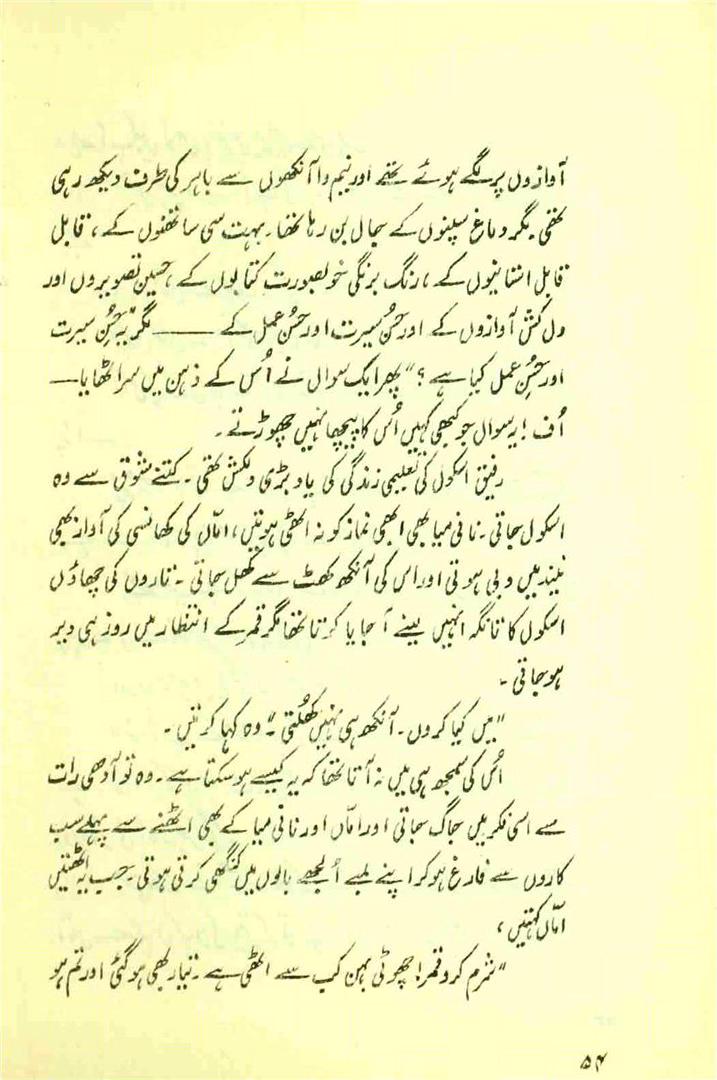 آوازوں پر لگے ہوئے تھے اور نیم وا آنکھوں سے باہر کی طرف دیکھ رہی
تھی۔ مگر دماغ سپنوں کے جال بن رہا تھا۔ بہت سی ساتھنوں کے، قابل
قابل استانیوں کے، رنگ برنگی خوبصورت کتابوں کے، حسین تصویروں اور
دل کش آوازوں کے اور حُسنِ سیرت اور حسنِ عمل کے —— مگر "یہ حُسنِ سیرت
اور حسنِ عمل کیا ہے؟" پھر ایک سوال نے اُس کے ذہن میں سر اٹھایا —
اُف! یہ سوال جو کبھی کہیں اُس کا پیچھا نہیں چھوڑتے۔
رفیق اسکول کی تعلیمی زندگی کی یاد بڑی دلکش تھی۔ کتنے شوق سے وہ
اسکول جاتی۔ نانی میا بھی ابھی نماز کو نہ اٹھی ہوتیں، امّاں کی کھانسی کی آواز بھی
نیند میں دبی ہوتی اور اس کی آنکھ کھٹ سے کھل جاتی۔ تاروں کی چھاؤں
اسکول کا تانگہ انہیں لینے آ جایا کرتا تھا مگر قمر کے انتظار میں روز ہی دیر
ہو جاتی۔
"میں کیا کروں۔ آنکھ ہی نہیں کھلتی۔" وہ کہا کرتیں۔
اُس کی سمجھ ہی میں نہ آتا تھا کہ یہ کیسے ہو سکتا ہے۔ وہ تو آدھی رات
سے اسی فکر میں جاگ جاتی اور امّاں اور نانی میا کے بھی اٹھنے سے پہلے سب
کاروں سے فارغ ہو کر اپنے لمبے اُلجھے بالوں میں کنگھی کرتی ہوتی۔ جب یہ اٹھتیں
امّاں کہتیں،
"شرم کرو قمر! چھوٹی بہن کب سے اٹھی ہے۔ تیار بھی ہو گئی اور تم ہو
۵۴